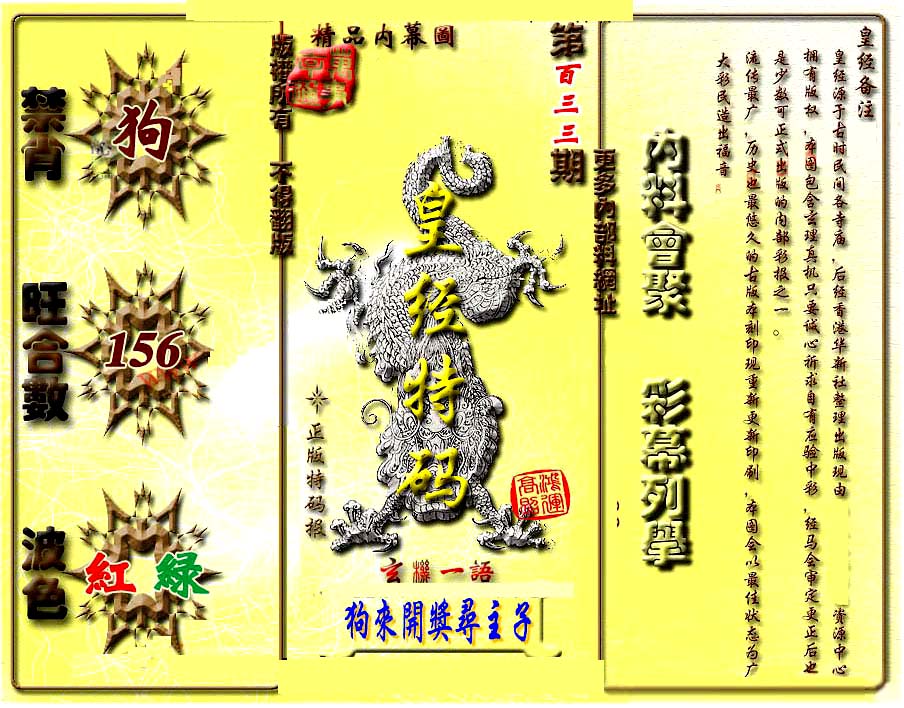 禁肖
狗
旺合數
156
波色
紅 綠
版權所有 不得翻版
精品内幕圖
第百三三期
更多内部料網址
皇经特码
正版特码报
鸿運高照
玄機一語
狗來開獎尋主子
内料會聚
彩幕列舉
皇经备注
皇经源于古时民间各寺庙，后经香港华新社整理出版现由 资源中心
拥有版权，本图包含玄理真机只要诚心祈求自有应验中彩，经马会审定更正后也
是少数可正式出版的内部彩报之一。
流传最广，历史也最悠久的古版本刻印现重新更新印刷，本图会以最佳状态为广
大彩民造出福音